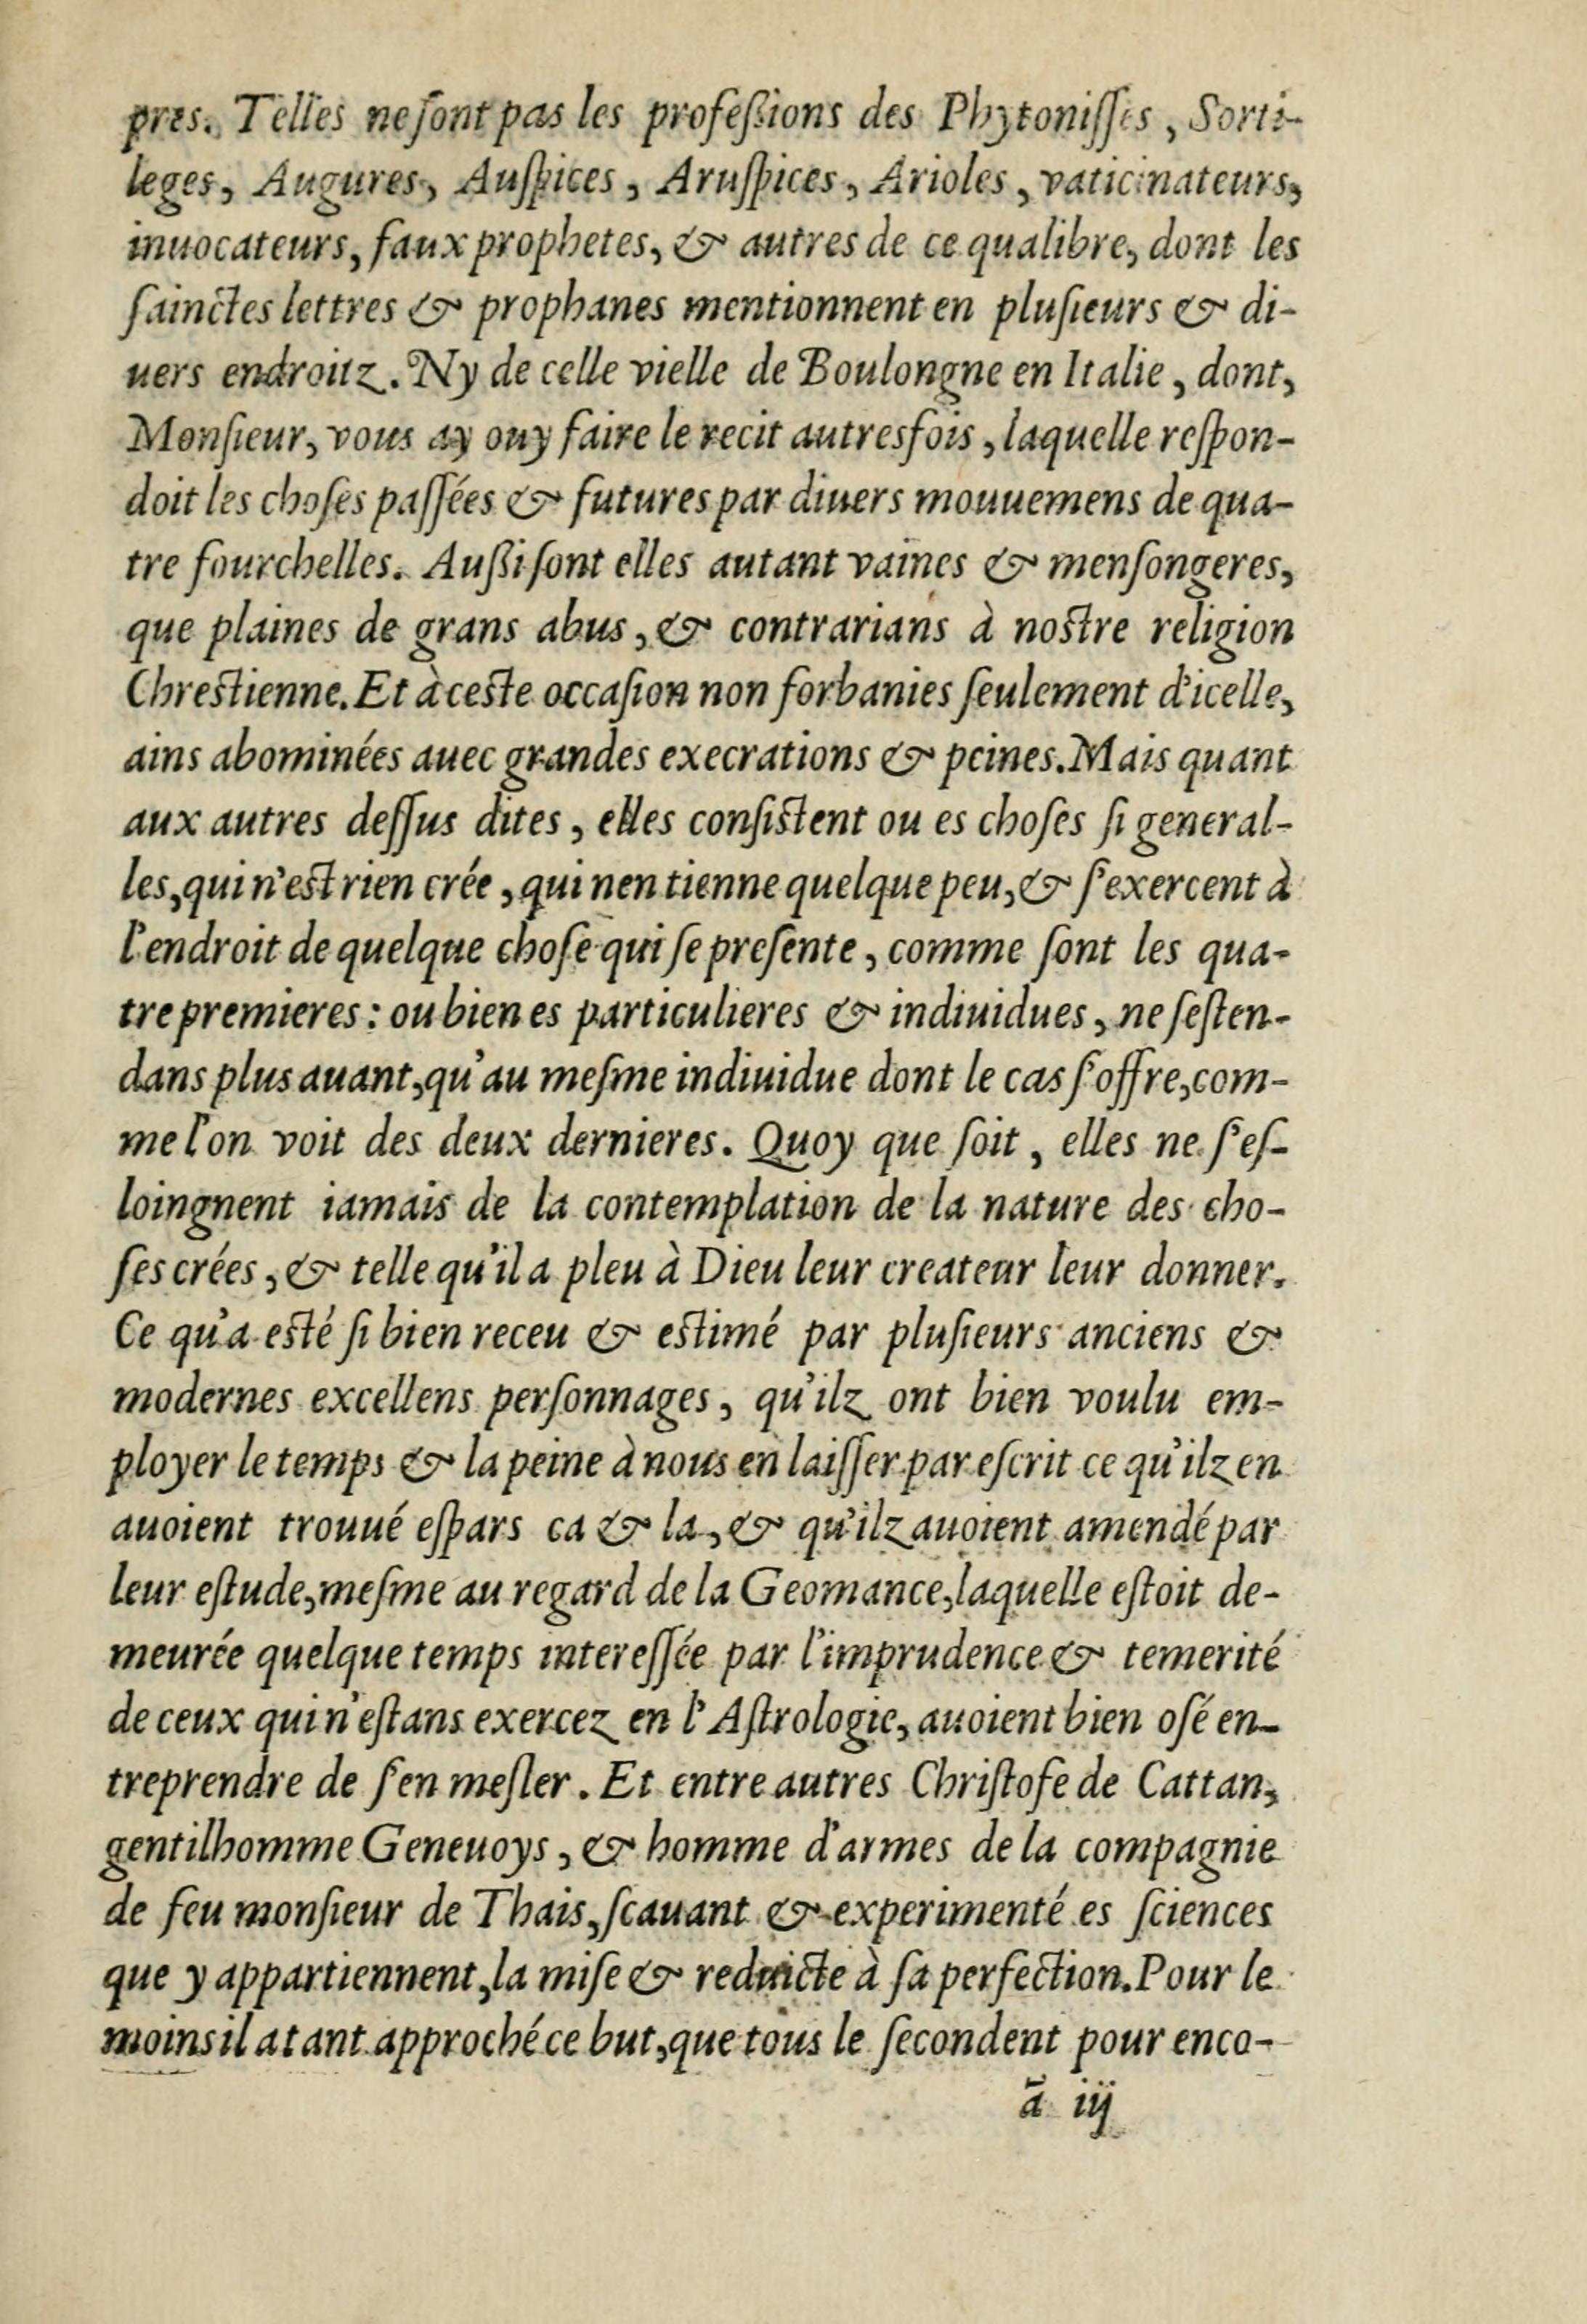 pres. Telles ne ſont pas les profeßions des Phytoniſſes, Sorti-
leges, Augures, Auſpices, Aruſpices, Arioles, vaticinateurs,
inuocateurs, faux prophetes, & autres de ce qualibre, dont les
ſainctes lettres & prophanes mentionnent en pluſieurs & di-
uers endroitz. Ny de celle vielle de Boulongne en Italie, dont,
Monſieur, vous ay ouy faire le recit autresfois, laquelle reſpon-
doit les choſes paſſées & futures par diuers mouuemens de qua-
tre fourchelles. Außi ſont elles autant vaines & menſongeres,
que plaines de grans abus, & contrarians à noſtre religion
Chreſtienne. Et à ceſte occaſion non forbanies ſeulement d'icelle,
ains abominées auec grandes execrations & peines. Mais quant
aux autres deſſus dites, elles conſiſtent ou es choſes ſi general-
les, qui n'eſt rien crée, qui nen tienne quelque peu, & ſ'exercent à
l'endroit de quelque choſe qui ſe preſente, comme ſont les qua-
tre premieres: ou bien es particulieres & indiuidues, ne ſeſten-
dans plus auant, qu'au meſme indiuidue dont le cas ſ'offre, com-
me l'on voit des deux dernieres. Quoy que ſoit, elles ne ſ'eſ-
loingnent iamais de la contemplation de la nature des cho-
ſes crées, & telle qu'il a pleu à Dieu leur createur leur donner.
Ce qu'a eſté ſi bien receu & eſtimé par pluſieurs anciens &
modernes excellens perſonnages, qu'ilz ont bien voulu em-
ployer le temps & la peine à nous en laiſſer par eſcrit ce qu'ilz en
auoient trouué eſpars ca & la, & qu'ilz auoient amendé par
leur eſtude, meſme au regard de la Geomance, laquelle eſtoit de-
meurée quelque temps intereſſée par l'imprudence & temerité
de ceux qui n'eſtans exercez en l'Aſtrologie, auoient bien oſé en-
treprendre de ſ'en meſler. Et entre autres Chriſtofe de Cattan,
gentilhomme Geneuoys, & homme d'armes de la compagnie
de feu monſieur de Thais, ſcauant & experimenté es ſciences
que y appartiennent, la miſe & reduicte à ſa perfection. Pour le
moins il a tant approché ce but, que tous le ſecondent pour enco-
ã iij